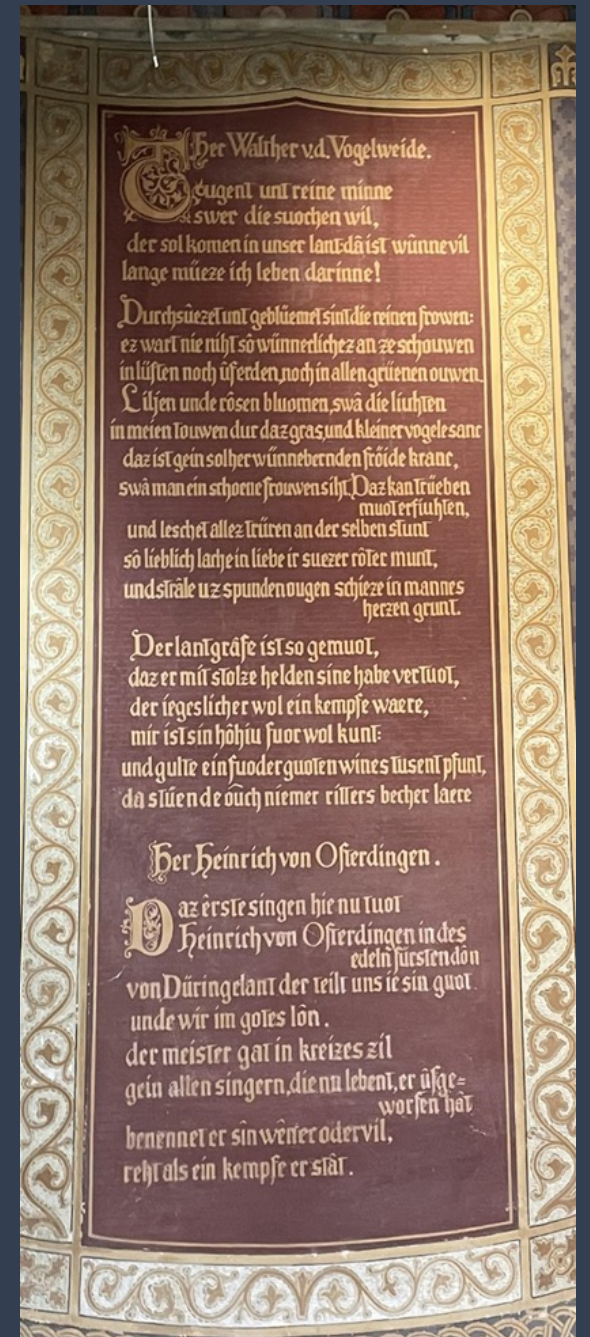 Her Walther v.d. Vogelweide.
Tugent unt reine minne
swer die suochen wil,
der sol komen in unser lant·dâ ist wünne vil
lange müeze ich leben darinne!
Durchsüezet unt geblüemet sint die reinen frowen:
ez wart nie niht sô wünneclichez an ze schouwen
in lüften noch ûf erden, noch in allen grüenen ouwen.
Liljen unde rôsen bluomen, swâ die liuhten
in meien touwen dur daz gras, und kleiner vogele sanc
daz ist gein solher wünnebernden fröide kranc,
swâ man ein schoene frouwen siht. Daz kan trüeben
muot erfiuhten,
und leschet allez trûren an der selben stunt
sô lieblich lache in liebe ir suezer rôter munt,
und strâle uz spunden ougen schieze in mannes
herzen grunt.
Der lantgrâfe ist so gemuot,
daz er mit stolze helden sine habe vertuot,
der iegeslicher wol ein kempfe waere,
mir ist sin hôhiu fuor wol kunt:
und gulte ein fuoder guoten wines tusent pfunt,
da stüende ouch niemer ritters becher laere
Her Heinrich von Ofterdingen.
Daz êrste singen hie nu tuot
Heinrich von Ofterdingen in des
edeln fürsten dôn
von Düringelant der teilt uns ie sin guot
unde wir im gotes lôn.
der meister gat in kreizes zil
gein allen singern, die nu lebent, er ûfge=
worfen hât
benennet er sin wêner oder vil,
reht als ein kempfe er stât.